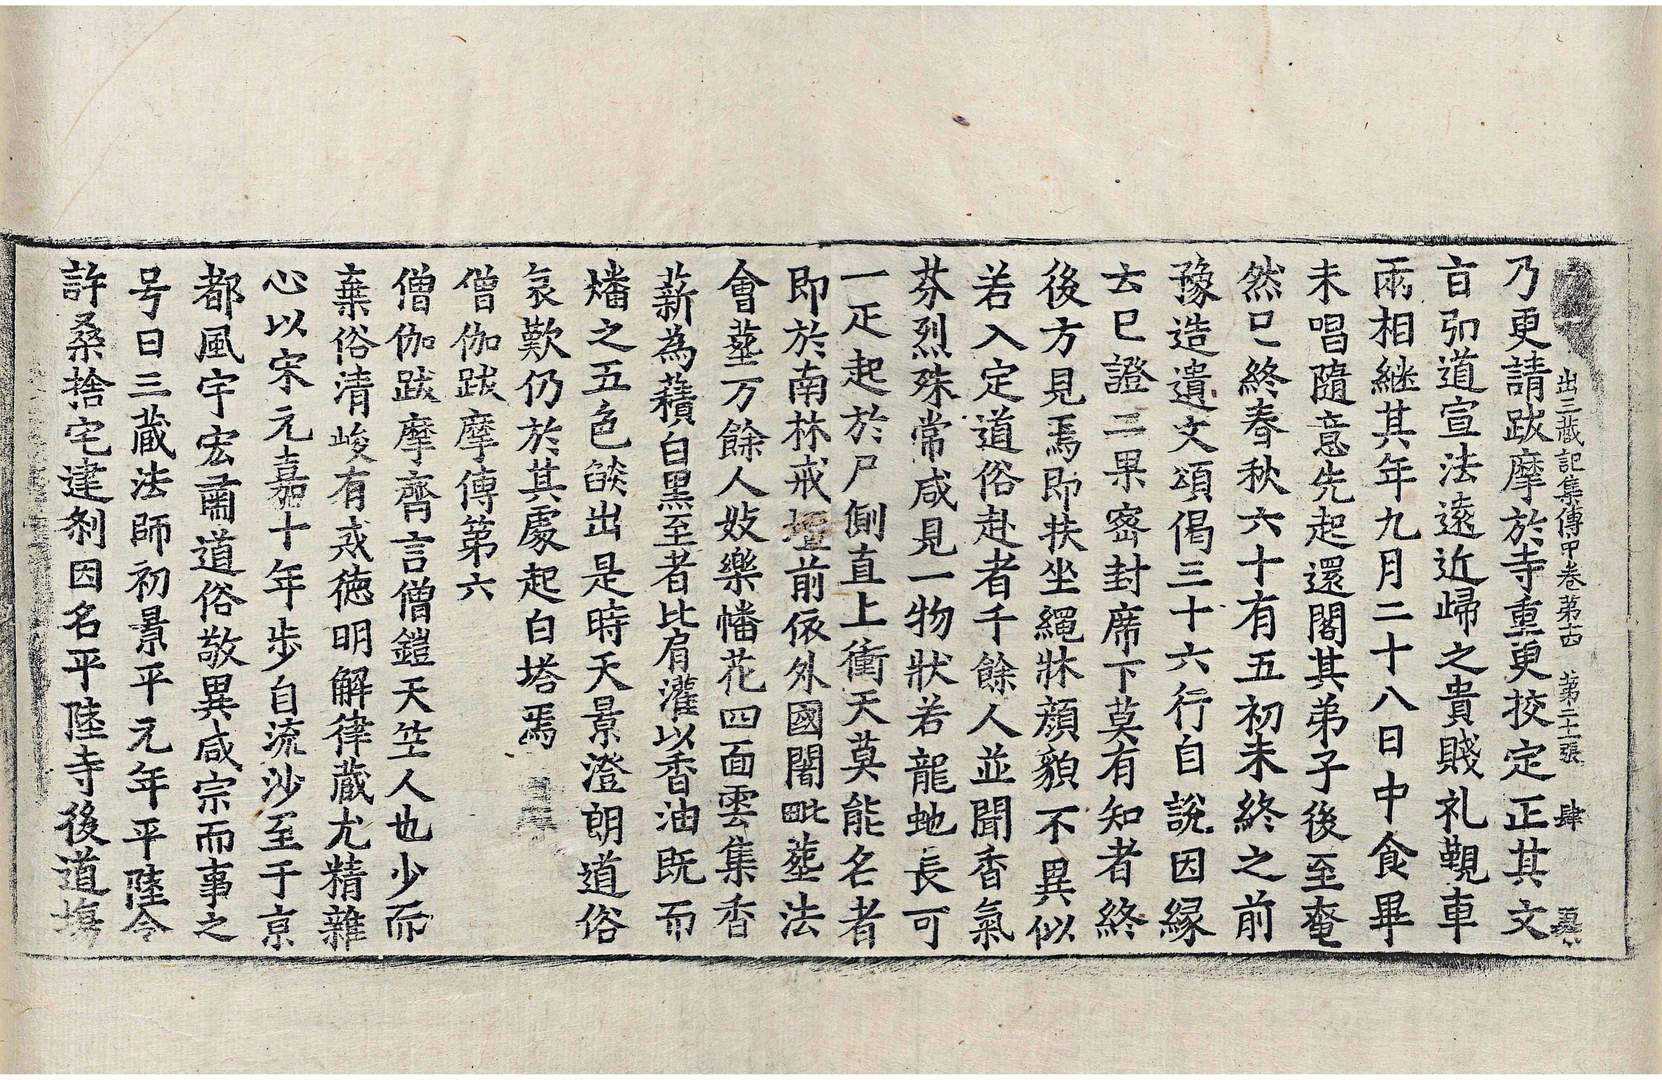 出三藏記集傳中卷第十四 第二十張 肆
乃更請跋摩於寺重更挍定正其文
言弘道宣法遠近歸之貴賤礼覲車
兩相継其年九月二十八日中食畢
未唱隨意先起還閣其弟子後至奄
然已終春秋六十有五初未終之前
豫造遺文頌偈三十六行自說因縁
去已證二果密封席下莫有知者終
後方見焉即扶坐繩牀顔貌不異似
若入定道俗赴者千餘人並聞香氣
芬烈殊常咸見一物狀若龍虵長可
一疋起於尸側直上衝天莫能名者
即於南林戒壇前依外國闍毗葬法
會葬万餘人妓樂幡花四面雲集香
薪為𧂐白黒至者比肩灌以香油既而
燔之五色焰出是時天景澄朗道俗
哀歎仍於其處起白塔焉
僧伽跋摩傳第六
僧伽跋摩齊言僧鎧天竺人也少而
棄俗清峻有戒徳明解律藏尤精雜
心以宋元嘉十年步自流沙至于京
都風宇宏肅道俗敬異咸宗而事之
号曰三藏法師初景平元年平陸令
許桑捨宅建刹因名平陸寺後道場